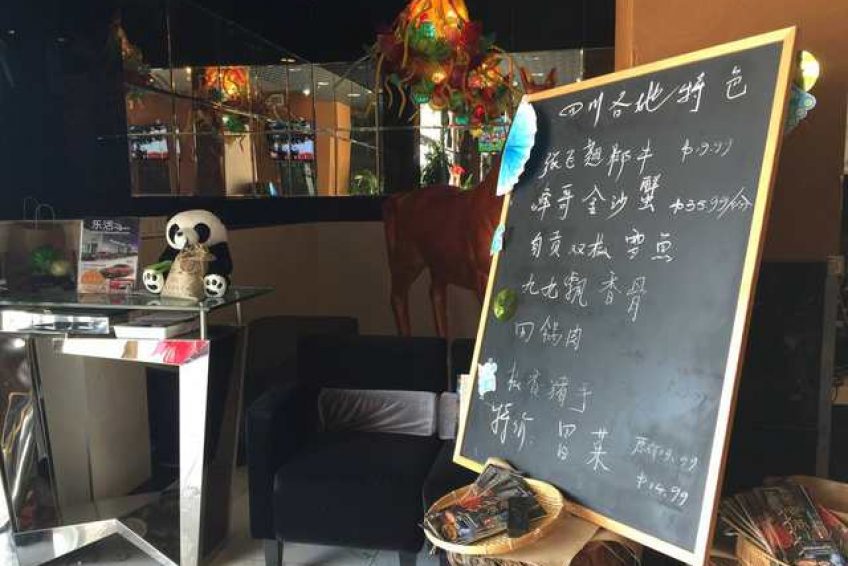 乐活
四川各地特色
张飞翘郡牛 $19.99
峰哥金沙蟹 $35.99/份
自贡双椒雪鱼
九九飘香骨
回锅肉
猪手
特价: 冒菜 原价19.99
$14.99